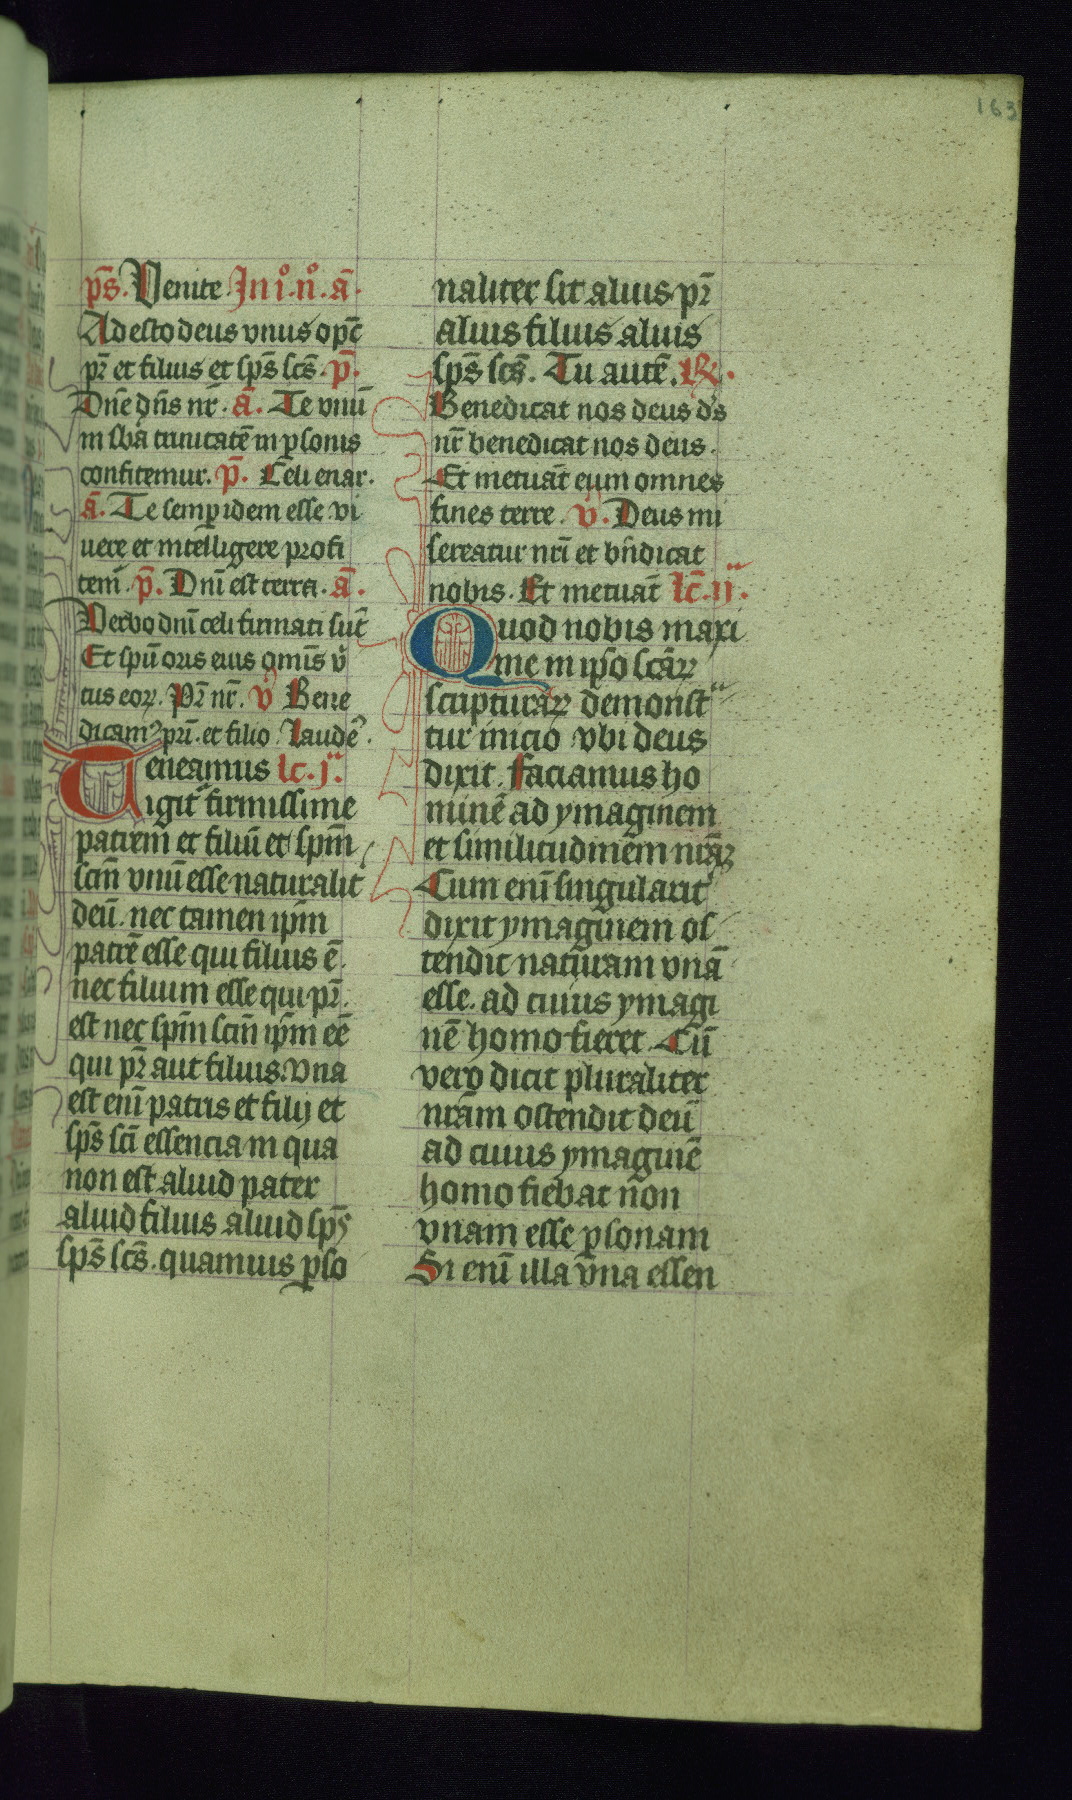 163
ps̄. Venite. In i°. n°. ā.
Adesto deus vnus opc̄
pr̄ et filius et sps̄ scs̄. p̄.
Dn̄e dn̄s nr̄. ā. Te vnū
in sbā trinitatē in ꝑsonis
confitemur. p̄. Celi enar.
ā. Te semꝑ idem esse vi
uere et intelligere profi
tem̄. p̄. Dn̄i est terra. ā.
Verbo dn̄i celi firmati sūt
Et spū oris eius omīs v̄
tus eoꝝ. Pr̄ nr̄. v̄ Bene
dicamꝰ pr̄i. et filio Laudē.
Teneamus lc̄. j.
Uigit̄ firmissime
patrem et filiū et spm̄
scm̄ vnū esse naturalit̄
deū. nec tamen ipm̄
patrē esse qui filius ē.
nec filium esse qui pr̄.
est nec spm̄ scm̄ ipm̄ eē
qui pr̄ aut filius. vna
est enī patris et filij et
sps̄ scī essencia in qua
non est aliud pater
aliud filius aliud sps̄
sps̄ scs̄. quamuis ꝑso
naliter sit alius pr̄
alius filius alius
sps̄ scs̄. Tu autē. R̄.
Benedicat nos deus ds̄
nr̄ benedicat nos deus.
Et metuāt eum omnes
fines terre. v̄. Deus mi
sereatur nr̄i et bn̄dicat
nobis. Et metuāt lc̄. ij.
Quod nobis maxi
me in ipso scāꝝ
scripturāꝝ demonst̄
tur inicio vbi deus
dixit. faciamus ho
minē ad ymaginem
et similitudinem nrāꝫ
Cum enī singularit̄
dixit ymaginem os
tendit naturam vnā
esse. ad cuius ymagi
nē homo fieret. Cū
vero dicit pluraliter
nrām ostendit deū
ad cuius ymaginē
homo fiebat non
vnam esse ꝑsonam
Si enī illa vna essen